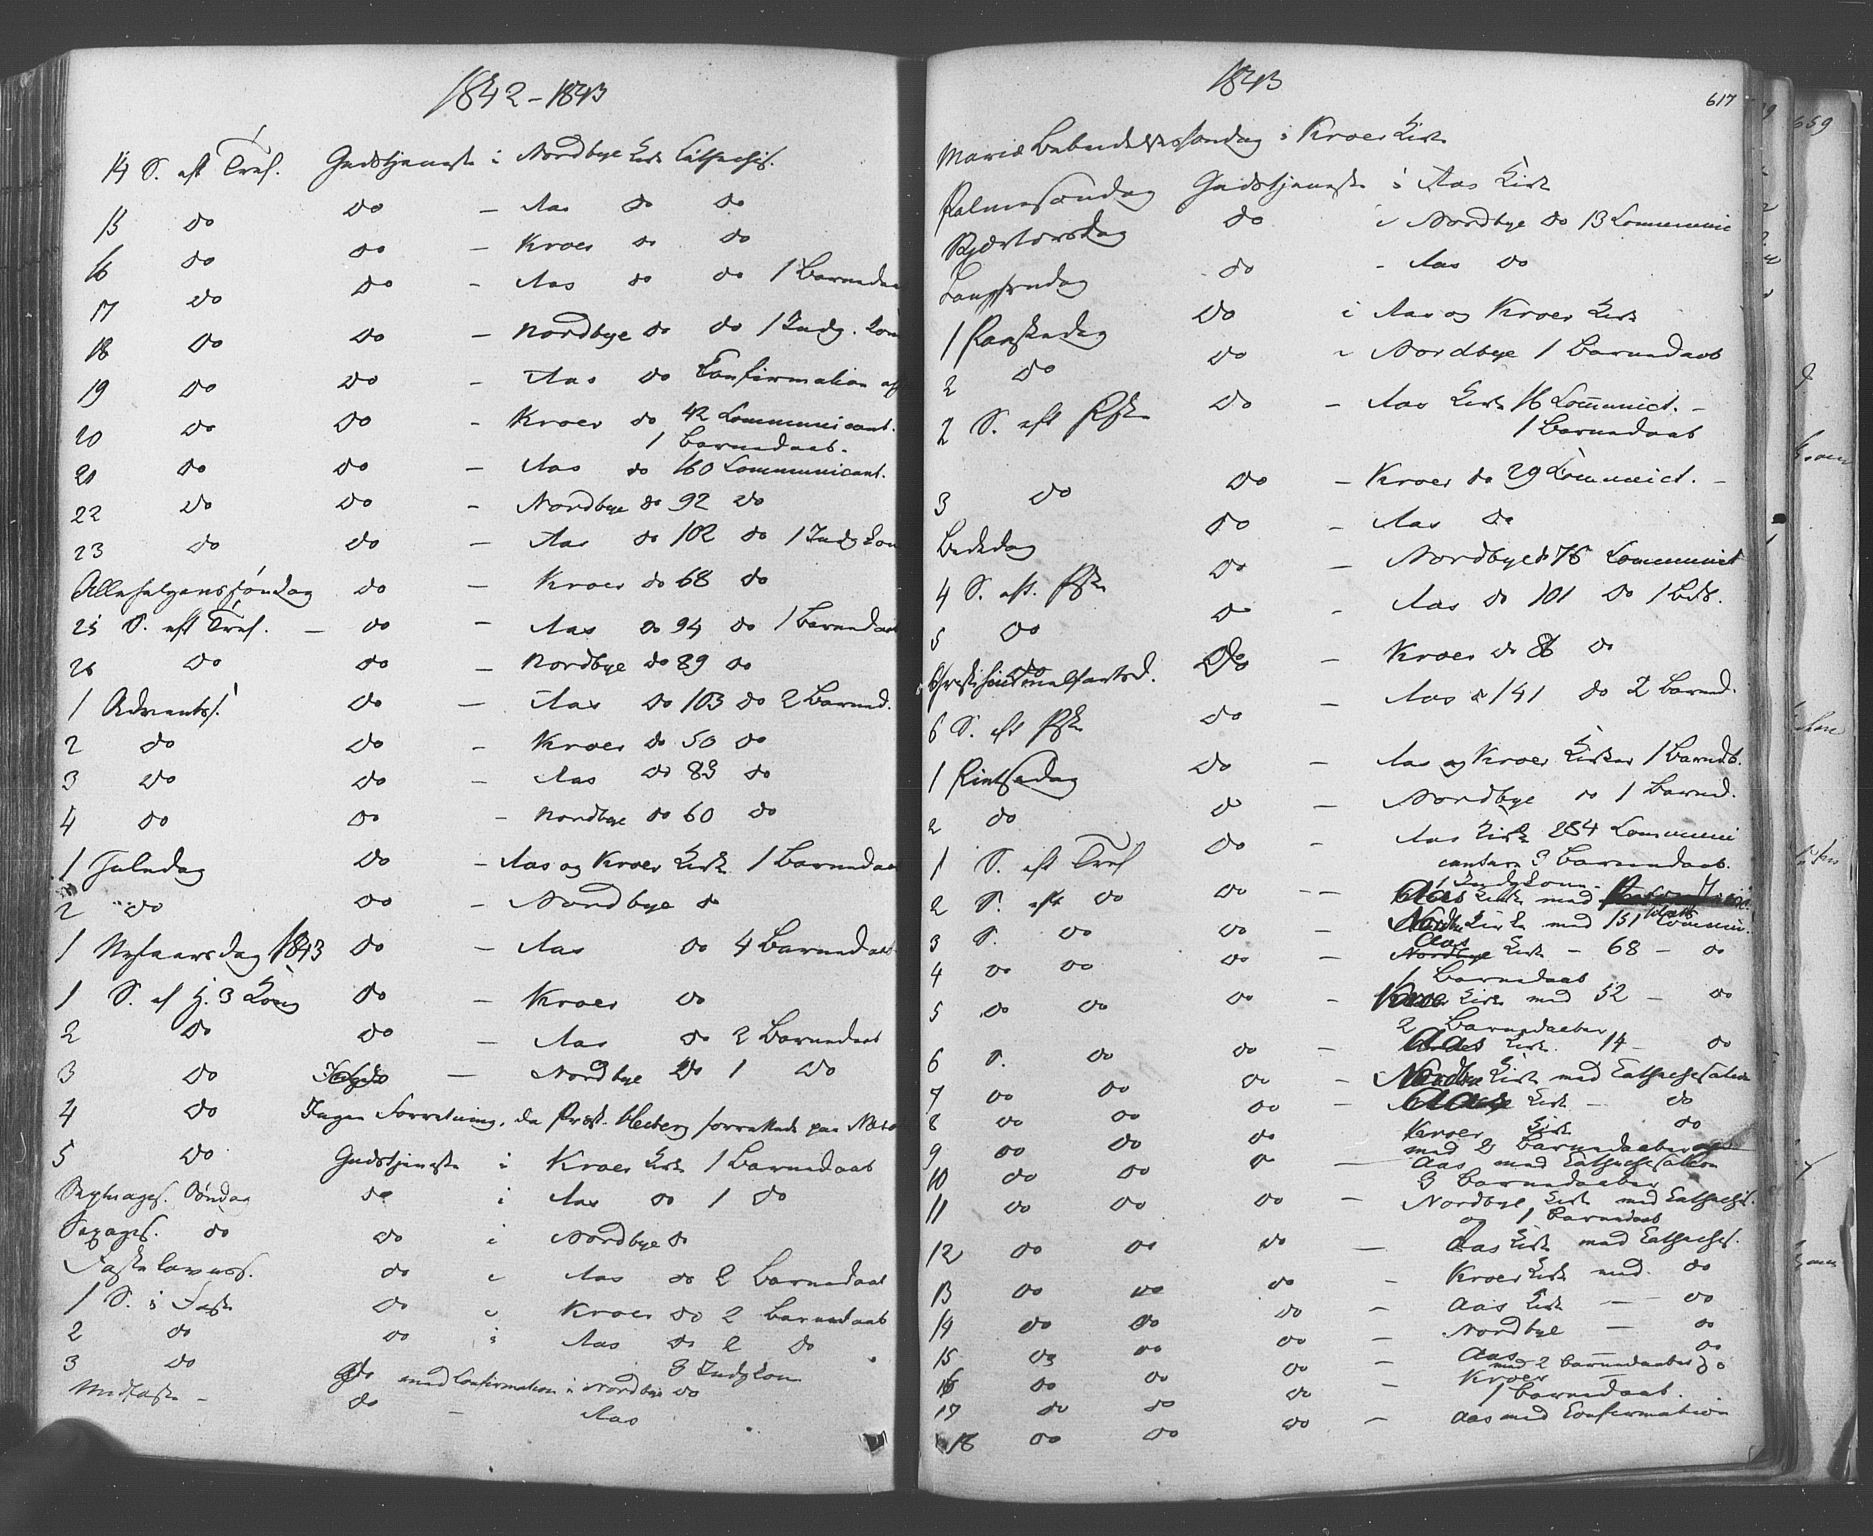 1842 - 1843
14 S. eft Tref. Gudstjeneste i Nordbye Kirke Cathechis.
15 do do - Aas do do
16 do do - Kroer do do
17 do do - Aas do do 1 Barnedaa
18 do do - Nordbye do do 1 Indg. Kon
19 do do - Aas do Confirmation af
20 do do - Kroer do 42 Communicant.
1 Barnedaab.
21 do do - Aas do 160 Communicant.
22 do do - Nordbye do 92 do
23 do do - Aas do 102 do 1 Indg Kon
Allehelgenssøndag do - Kroer do 68 do
25 S. eft Tref. - do - Aas do 94 do 1 Barnedaab
26 do do - Nordbye do 89 do
1 Advents. do - Aas do 103 do 2 Barned.
2 do do - Kroer do 50 do
3 do do - Aas do 83 do
4 do do - Nordbye do 60 do
1 Juledag do - Aas og Kroer Kirke 1 Barnedaa
2 do do - Nordbye do
1 Nytaarsdag 1843 do - Aas do 4 Barnedaab
1 S. ef H. 3 Kong do - Kroer do
2 do do - Aas do 2 Barnedaab
3 do do - Nordbye do 1 do
4 do Ingen Forretning, da Præst. Heiberg forrettede paa
5 do Gudstjeneste i Kroer Kirke 1 Barnedaab
Septuages. Søndag do i Aas do 1 do
Sexages. do do i Nordbye do
Fastelavnss. do i Aas do 2 Barnedaab
1 S. i Faste do i Kroer do 2 Barnedaab
2 do do i Aas do 2 do
3 do do med Confirmation i Nordbye do 3 Indg Kon
Midfaste - do - Aas
1843
617
Mariæ Bebudelsessøndag i Kroer Kirke
Palmesøndag Gudstjeneste i Aas Kirke
Skjærtorsdag do i Nordbye do 13 Communic
Langfredag do - Aas do
1 Paaskedag do i Aas og Kroer Kirke
2 do do i Nordbye 1 Barnedaab
2 S. eft Pske do - Aas Kirke 16 Communict. -
1 Barnedaab
3 do do - Kroer do 29 Communict. -
Bededag do - Aas do
4 S. eft. Pske do - Nordbye do 76 Communict
5 do do - Aas do 101 do 1 Bdb.
Christi himmelfartsd. do - Kroer do 86 do
6 S. eft Pske do - Aas do 141 do 2 Barned.
1 Pintsedag do - Aas og Kroer Kirker 1 Barndb.
2 do do - Nordbye do 1 Barned.
1 S. eft Tref do - Aas Kirke 284 Communi
cantere 3 Barnedaab.
1 Indg Kone -
2 S. eft do do - - Aas Kirke med
3 S. do do - Nordbye Kirke med 151 Commun.
4 do do do - Aas Kirke - 68 - do
1 Barnedaab
5 do do do - Kroer Kirke med 52 - do
2 Barnedaaber
6 S. do do - Aas Kirke 14 - do
7 do do do - Nordbye Kirke med Cathechesation
8 do do do - Aas Kirke - do
9 do do do Kroer Kirke do
med 2 Barnedaaber
10 do do do - Aas med Cathechesation
3 Barnedaaber
11 do do do - Nordbye Kirke med Cathechis.
og 1 Barnedaab
12 do do do - Aas Kirke med Cathechis.
13 do do do Kroer Kirke med. do
14 do do do - Aas Kirke - do
15 do do do - Nordbye - do
16 do do do - Aas - do
med 2 Barnedaaber
17 do do do Kroer - do
1 Barnedaab.
18 do do do - Aas med Confirmation